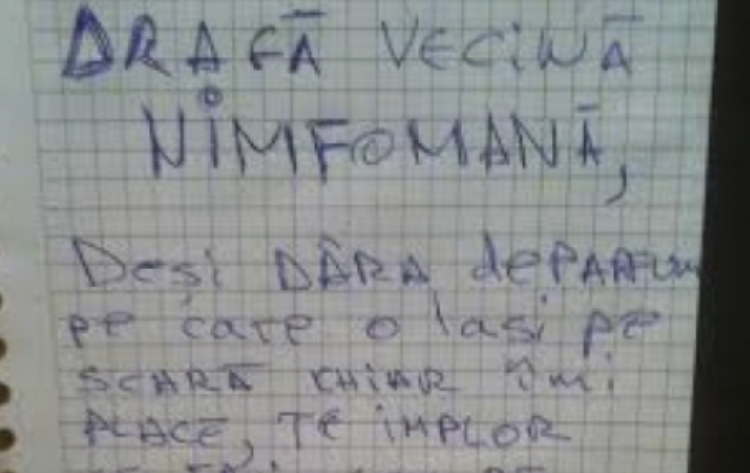 DRAGĂ VECINĂ
NIMFOMANĂ,
Deși DÂRA de PARFUM
pe care o lași pe
SCARĂ CHIAR îmi
PLACE, TE IMPLOR